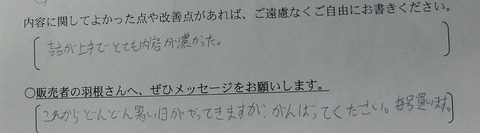 内容に関してよかった点や改善点があれば、ご遠慮なくご自由にお書きください。
話が上手でとても内容が濃かった。
○販売者の羽根さんへ、ぜひメッセージをお願いします。
これからどんどん暑い日がやってきますが、がんばってください。毎号買います。